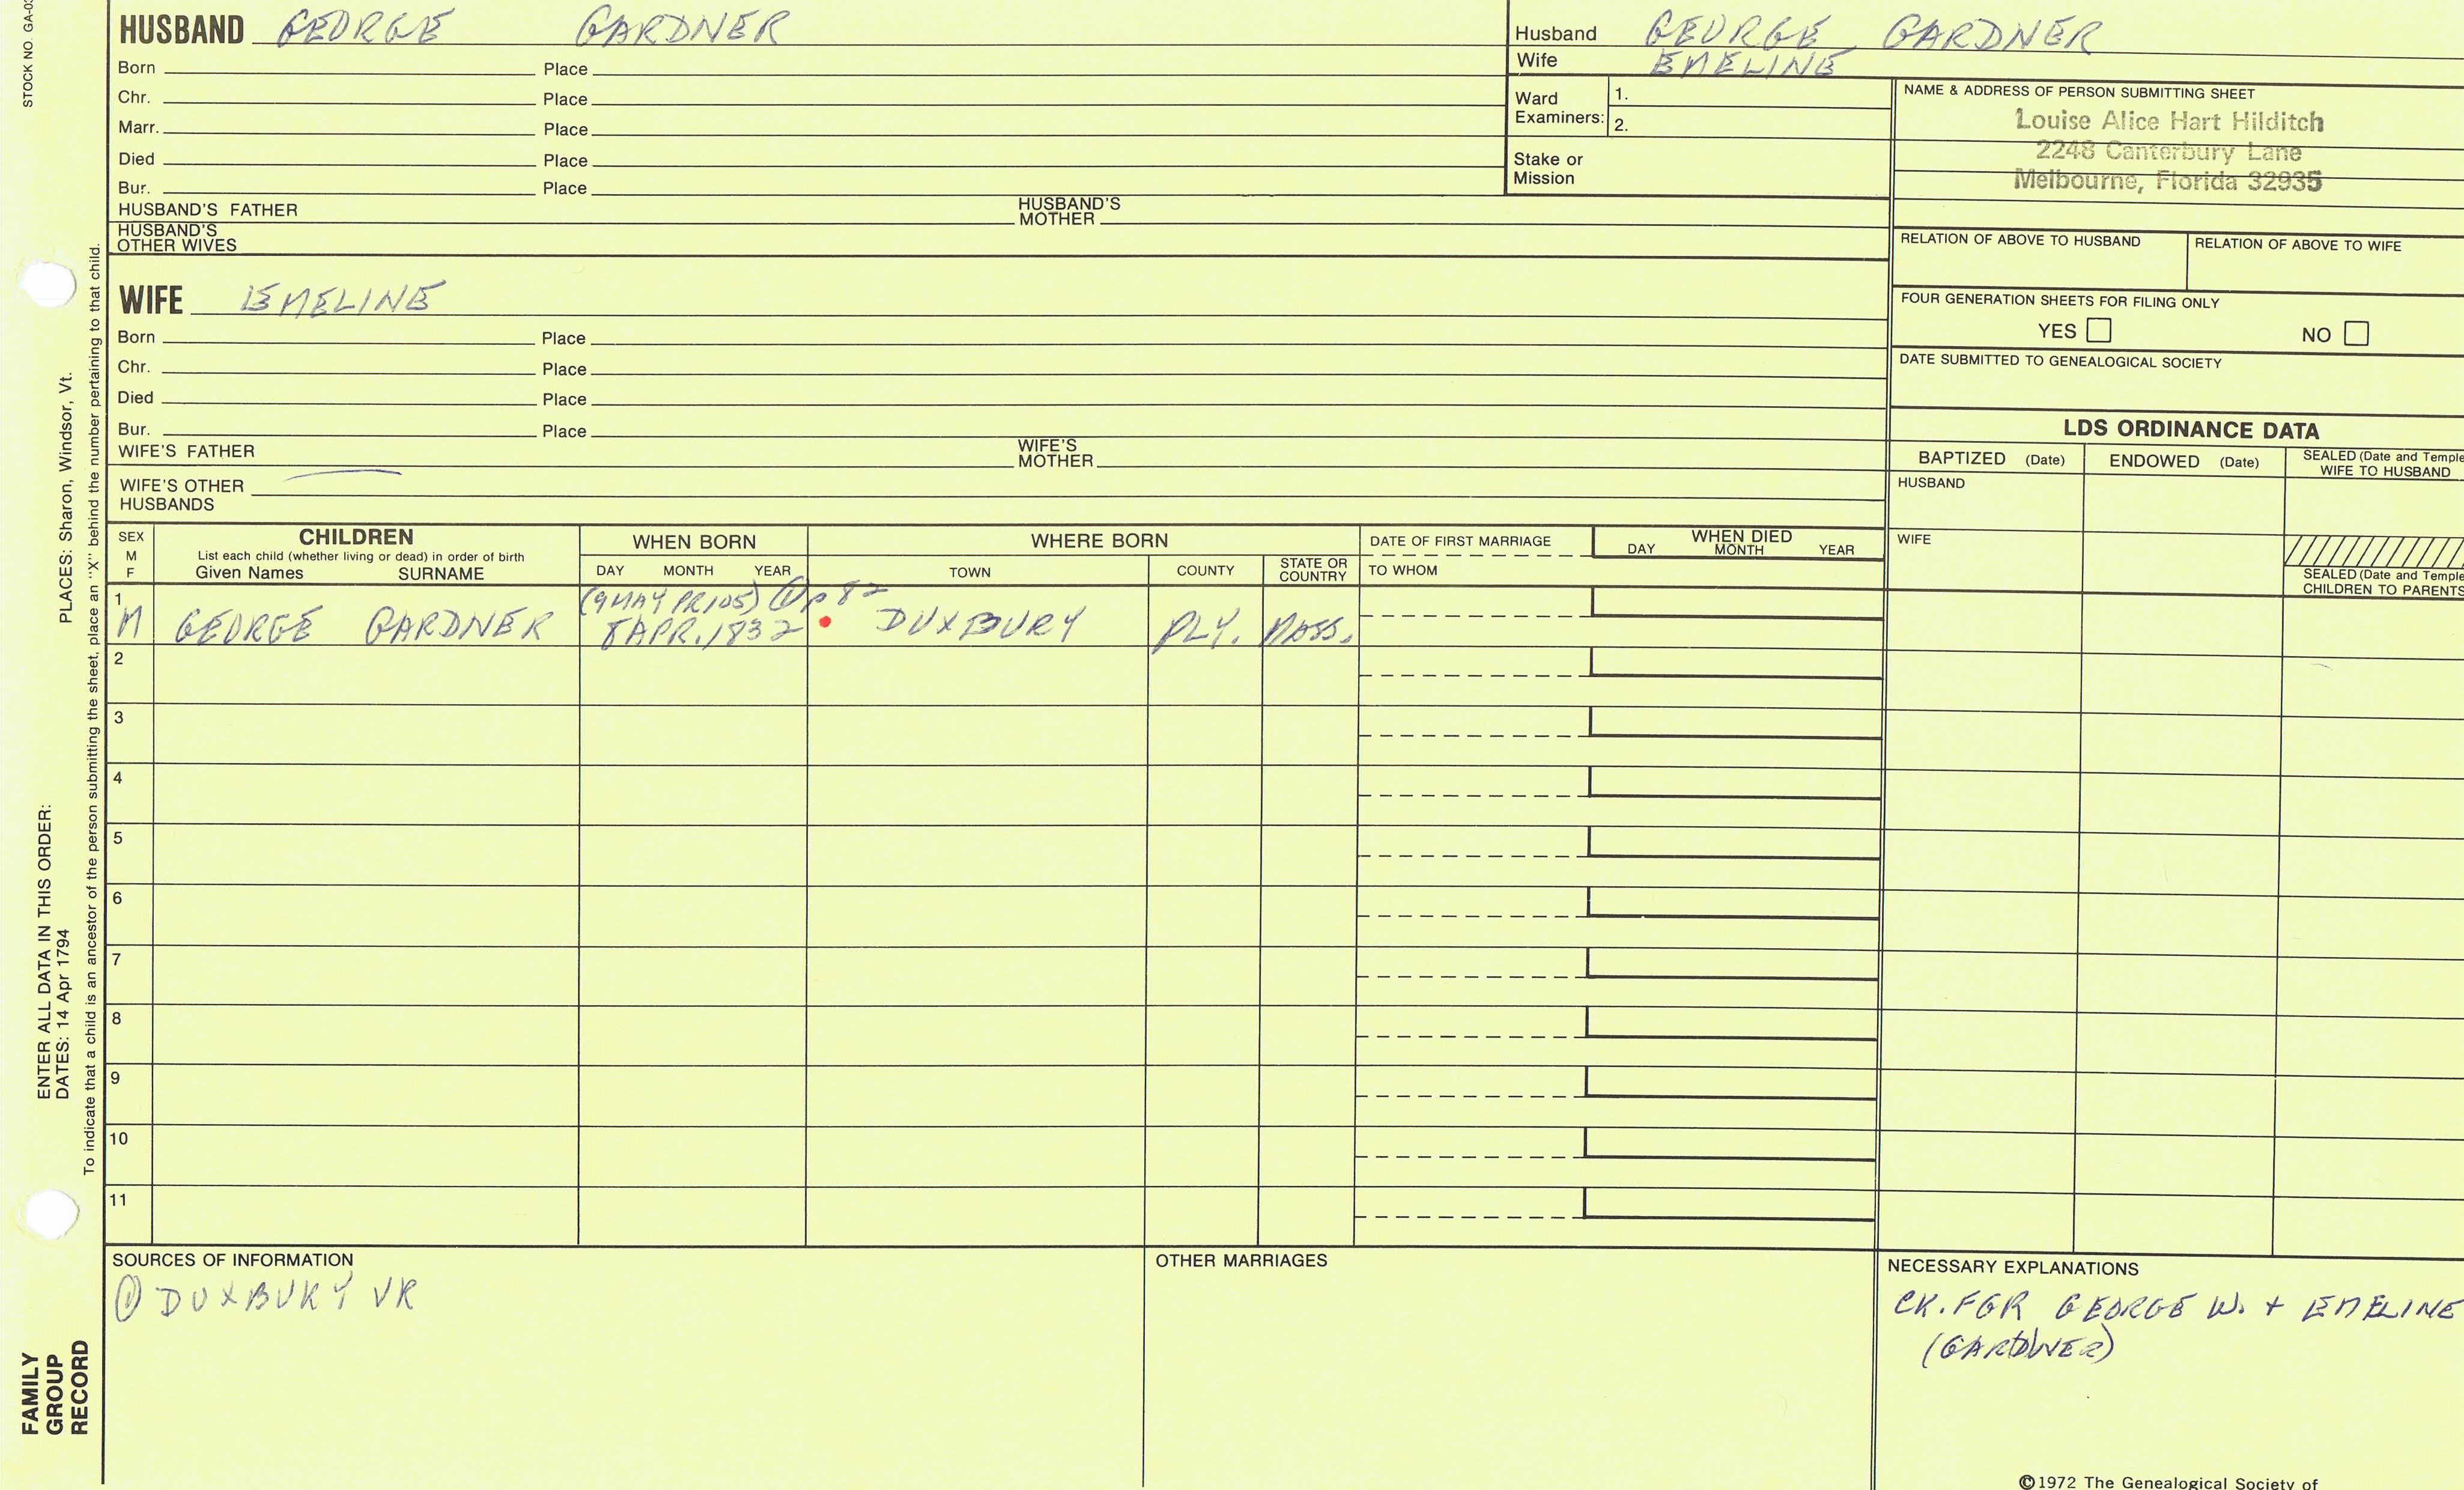 STOCK NO. GA-03
HUSBAND GEORGE GARDNER
Born Place
Chr. Place
Marr. Place
Died Place
Bur. Place
HUSBAND'S FATHER HUSBAND'S MOTHER
HUSBAND'S OTHER WIVES
Husband GEORGE GARDNER
Wife EMELINE
Ward Examiners: 1.
2.
Stake or Mission
NAME & ADDRESS OF PERSON SUBMITTING SHEET
Louise Alice Hart Hilditch
2248 Canterbury Lane
Melbourne, Florida 32935
RELATION OF ABOVE TO HUSBAND RELATION OF ABOVE TO WIFE
FOUR GENERATION SHEETS FOR FILING ONLY
YES NO
DATE SUBMITTED TO GENEALOGICAL SOCIETY
WIFE EMELINE
Born Place
Chr. Place
Died Place
Bur. Place
WIFE'S FATHER WIFE'S MOTHER
WIFE'S OTHER HUSBANDS
LDS ORDINANCE DATA
BAPTIZED (Date) ENDOWED (Date) SEALED (Date and Temple
WIFE TO HUSBAND
HUSBAND
WIFE
SEALED (Date and Temple
CHILDREN TO PARENTS
SEX M F
CHILDREN
List each child (whether living or dead) in order of birth
Given Names SURNAME
WHEN BORN
DAY MONTH YEAR
WHERE BORN
TOWN COUNTY STATE OR COUNTRY
DATE OF FIRST MARRIAGE
TO WHOM
WHEN DIED
DAY MONTH YEAR
1 (9 MAY PR105) ① p 82
M GEORGE GARDNER 8 APR. 1832 DUXBURY PLY. MASS.
2
3
4
5
6
7
8
9
10
11
SOURCES OF INFORMATION
① DUXBURY VR
OTHER MARRIAGES
NECESSARY EXPLANATIONS
CK. FGR GEORGE W. + EMELINE
(GARDNER)
©1972 The Genealogical Society of
ENTER ALL DATA IN THIS ORDER:
DATES: 14 Apr 1794
PLACES: Sharon, Windsor, Vt.
To indicate that a child is an ancestor of the person submitting the sheet, place an "X" behind the number pertaining to that child.
FAMILY
GROUP
RECORD